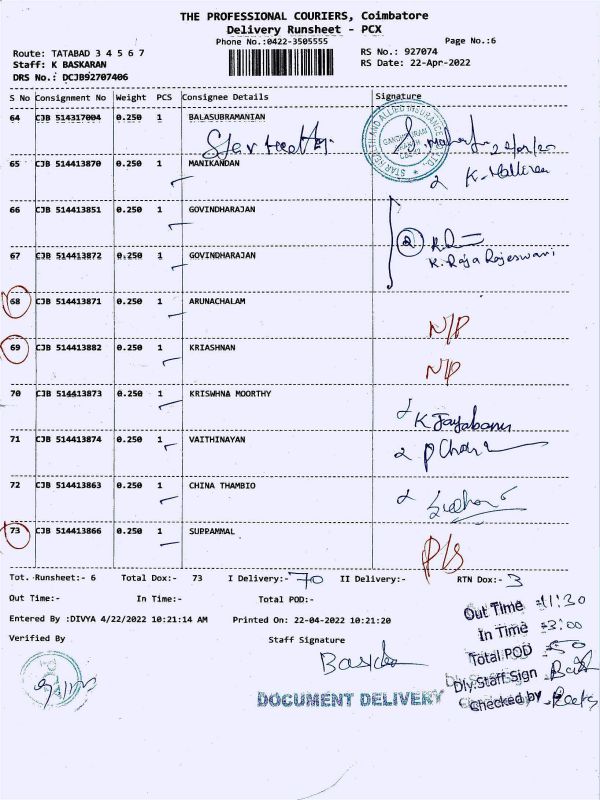 THE PROFESSIONAL COURIERS, Coimbatore
Delivery Runsheet - PCX
Phone No.:0422-3505555
Page No.:6
Route: TATABAD 3 4 5 6 7
RS No.: 927074
Staff: K BASKARAN
RS Date: 22-Apr-2022
DRS No.: DCJB92707406
S No Consignment No Weight PCS Consignee Details Signature
64 CJB 514317004 0.250 1 BALASUBRAMANIAN
65 CJB 514413870 0.250 1 MANIKANDAN
66 CJB 514413851 0.250 1 GOVINDHARAJAN
67 CJB 514413872 0.250 1 GOVINDHARAJAN
K. Raja Rajeswari
68 CJB 514413871 0.250 1 ARUNACHALAM
N/P
69 CJB 514413882 0.250 1 KRIASHNAN
N/P
70 CJB 514413873 0.250 1 KRISWHNA MOORTHY
K Jayabanu
71 CJB 514413874 0.250 1 VAITHINAYAN
72 CJB 514413863 0.250 1 CHINA THAMBIO
73 CJB 514413866 0.250 1 SUPPAMMAL
P/S
Tot. Runsheet:- 6 Total Dox:- 73 I Delivery:- 70 II Delivery:- RTN Dox:- 3
Out Time:- In Time:- Total POD:-
Entered By :DIVYA 4/22/2022 10:21:14 AM Printed On: 22-04-2022 10:21:20
Verified By Staff Signature
Out Time 11:30
In Time 3:00
Total POD 50
Dly.Staff Sign
Checked by
DOCUMENT DELIVERY